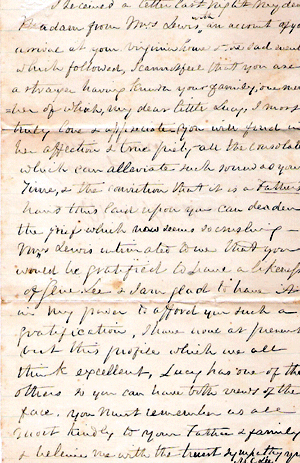 I received a letter last night my dear
Madam from Mrs Lewis with an account of your
arrival at your Virginia home & the sad event
which followed, I cannot feel that you are
a stranger having known your family, one mem
ber of which, my dear little Lucy, I most
truly love & appreciate (you will find in
her affection & true piety all the consolation
which can alleviate such sorrow as yours
Time, & the conviction that it is a Father's
hand thus laid upon you can deaden
the grief which now seems so crushing —
Mrs Lewis intimated to me that you
would be gratified to have a likeness
of Genl Lee & I am glad to have it
in my power to afford you such a
gratification, I have none at present
but this profile which we all
think excellent, Lucy has one of the
others so you can have both views of the
face. You must remember us all
most kindly to your Father & family
& believe me with the truest sympathy yrs
Lee